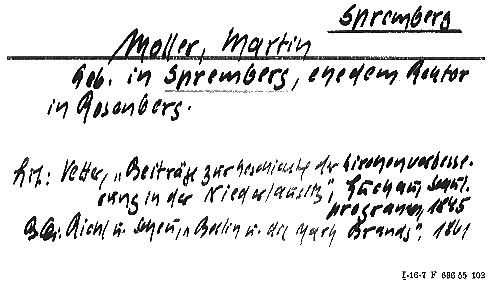 Spremberg
Moller, Martin
Geb. in Spremberg, ehedem Rektor
in Rosenberg.
Lit: Vetter, „Beiträge zur Geschichte der Kirchenverbesse-
rung in der Niederlausitz", Luckau, Schul-
programm, 1845
Riehl u. Scheu, „Berlin u. die Mark Brandb", 1861
I-16-7 F 686 55 102